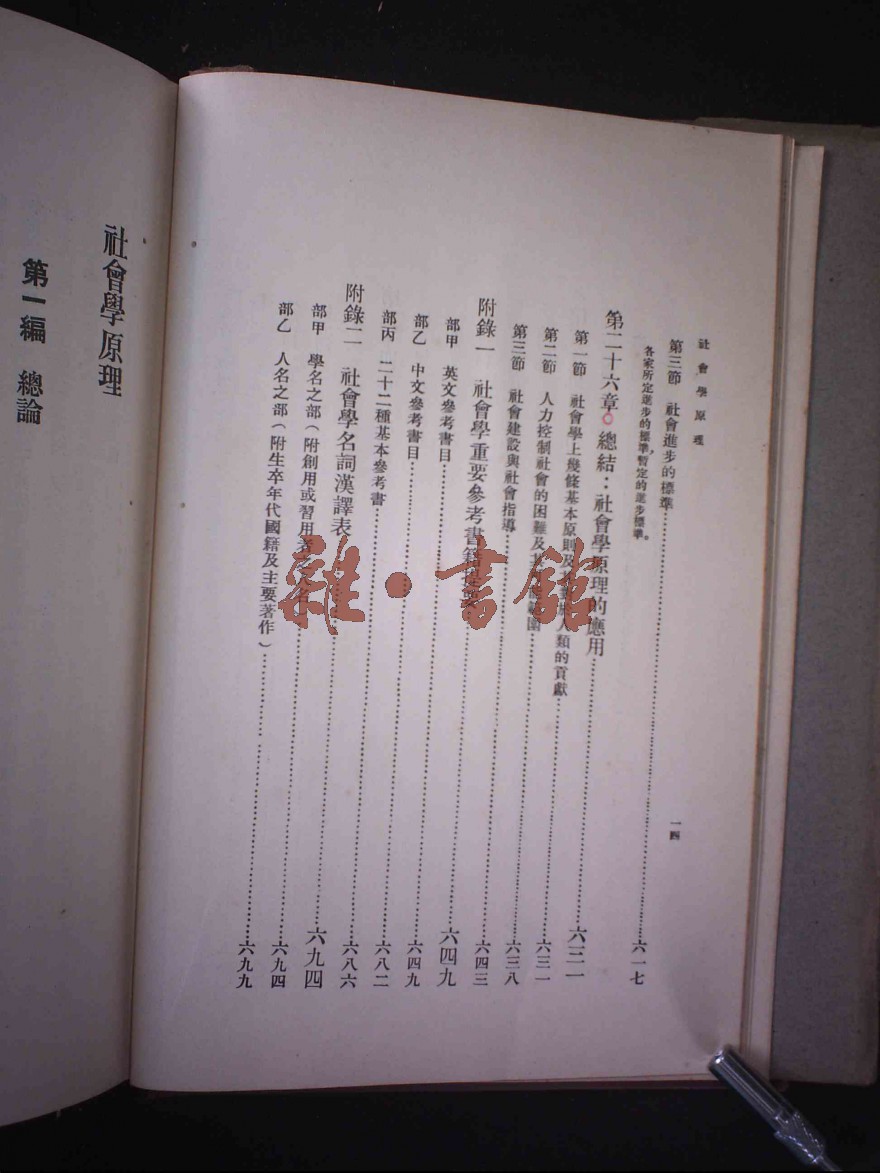 社會學原理
一四
第三節 社會進步的標準……六一七
各家所定進步的標準,暫定的進步標準。
第二十六章 總結:社會學原理的應用……六三一
第一節 社會學上幾條基本原則及其對於人類的貢獻……六三一
第二節 人力控制社會的困難及其可能範圍……六三八
第三節 社會建設與社會指導……六四三
附錄一 社會學重要參考書籍提要……六四九
部甲 英文參考書目……六四九
部乙 中文參考書目……六八二
部丙 二十二種基本參考書……六八六
附錄二 社會學名詞漢譯表……六九四
部甲 學名之部(附創用或習用者之人名)……六九四
部乙 人名之部(附生卒年代國籍及主要著作)……六九九
社會學原理
第一編 總論
雜·書館